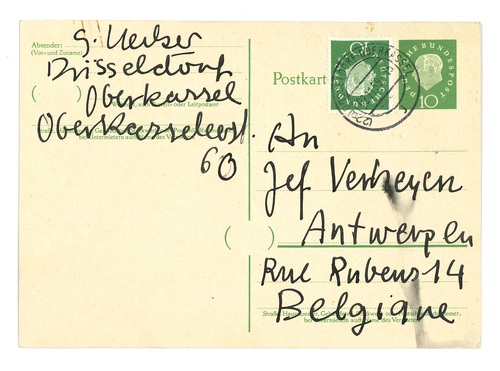 Absender:
(Vor- und Zuname)
G. Uecker
Düsseldorf
Oberkassel
Oberkasselerst.
60
Postkarte
DEUTSCHE BUNDESPOST
10
An
Jef Verheyen
Antwerpen
Rue Rubens 14
Belgique